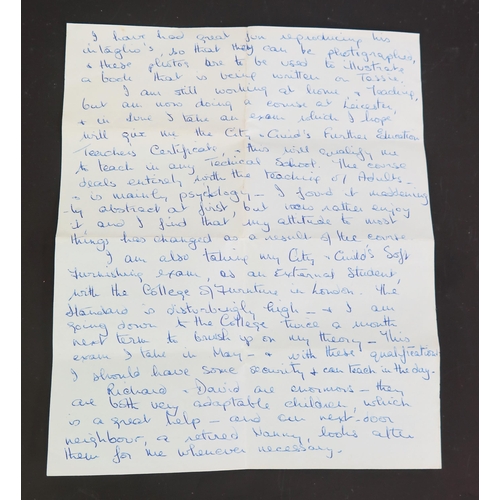 I have had great fun reproducing his
intaglio's, so that they can be photographed,
& these photos are to be used to illustrate
a book that is being written on Tassie.
I am still working at home, & teaching,
but am now doing a course at Leicester,
& in June I take an exam which I hope
will give me the City & Guild's Further Education
Teachers Certificate, & this will qualify me
to teach in any Technical School. The course
deals entirely with the teaching of Adults -
& is mainly psychology - I found it maddening
-ly abstract at first, but now rather enjoy
it and I find that my attitude to most
things has changed as a result of the course.
I am also taking my City & Guild's Soft
Furnishing exam, as an External Student,
with the College of Furniture in London. The
Standard is disturbingly high - & I am
going down to the College twice a month
next term to brush up on my theory - This
exam I take in May - & with these qualifications
I should have some security & can teach in the day.
Richard & David are enormous - they
are both very adaptable children, which
is a great help - and our next-door
neighbour, a retired Nanny, looks after
them for me whenever necessary.